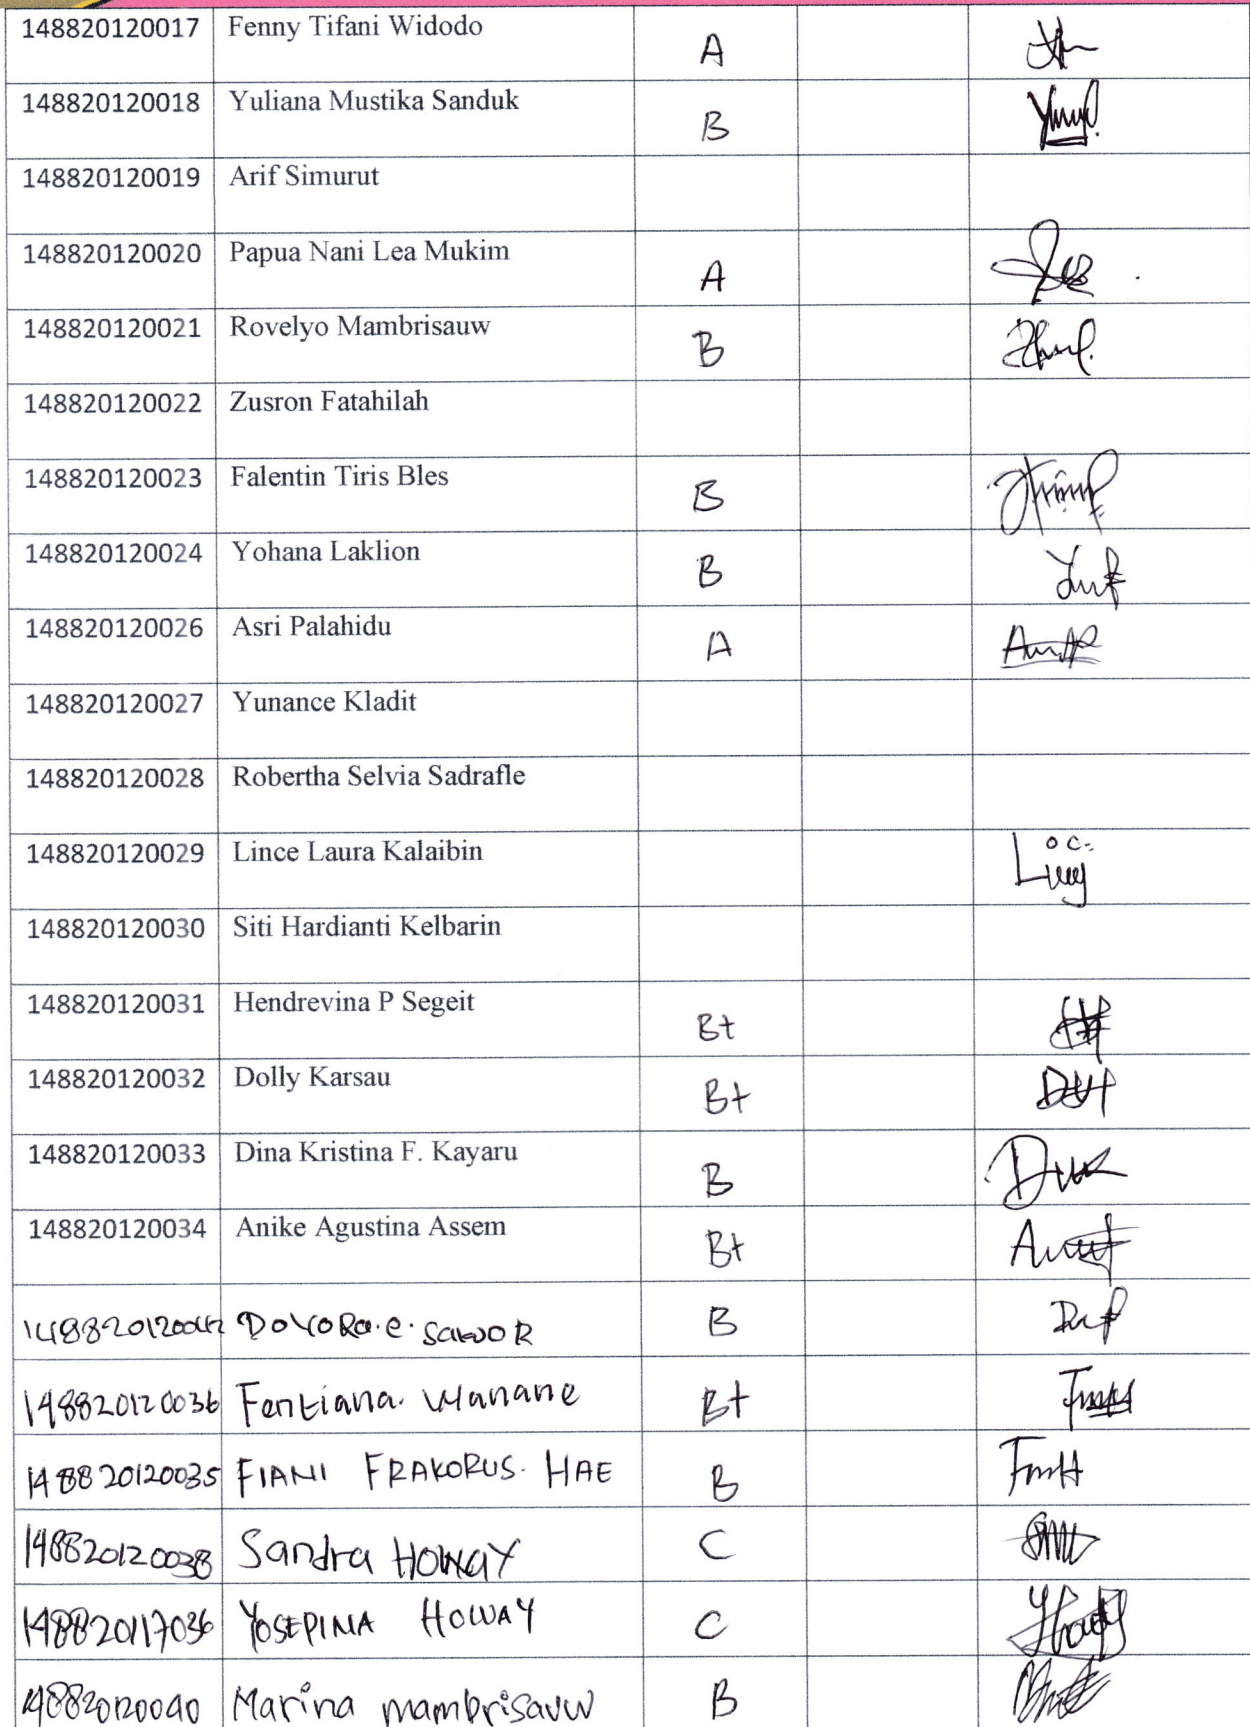 148820120017 Fenny Tifani Widodo A
148820120018 Yuliana Mustika Sanduk B
148820120019 Arif Simurut
148820120020 Papua Nani Lea Mukim A
148820120021 Rovelyo Mambrisauw B
148820120022 Zusron Fatahilah
148820120023 Falentin Tiris Bles B
148820120024 Yohana Laklion B
148820120026 Asri Palahidu A
148820120027 Yunance Kladit
148820120028 Robertha Selvia Sadrafle
148820120029 Lince Laura Kalaibin
148820120030 Siti Hardianti Kelbarin
148820120031 Hendrevina P Segeit B+
148820120032 Dolly Karsau B+
148820120033 Dina Kristina F. Kayaru B
148820120034 Anike Agustina Assem B+
SawOR B
148820120036 Fentiana. Wanane B+
148820120035 FIANI FRAKORUS. HAE B
148820120038 Sandra HOWAY C
148820117036 YOSEPINA HOWAY C
148820120040 Marina mambrisauw B